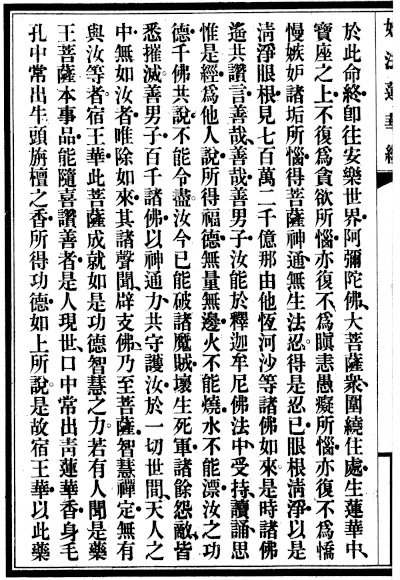 妙法蓮華經
於此命終卽往安樂世界阿彌陀佛、大菩薩衆、圍繞住處、生蓮華中、
寶座之上不復爲貪欲所惱亦復不爲瞋恚愚癡所惱亦復不爲憍
慢嫉妒諸垢所惱得菩薩神通無生法忍得是忍已眼根淸淨以是
淸淨眼根見七百萬二千億那由他恆河沙等諸佛如來是時諸佛
遙共讚言善哉、善哉善男子汝能於釋迦牟尼佛法中、受持讀誦思
惟是經、爲他人說所得福德無量無邊火不能燒水不能漂汝之功
德千佛共說不能令盡汝今已能破諸魔賊壞生死軍諸餘怨敵、皆
悉摧滅善男子百千諸佛以神通力、共守護汝於一切世間、天人之
中無如汝者唯除如來其諸聲聞、辟支佛、乃至菩薩智慧禪定無有
與汝等者宿王華此菩薩成就如是功德智慧之力若有人聞是藥
王菩薩本事品能隨喜讚善者是人現世、口中常出靑蓮華香身毛
孔中常出牛頭旃檀之香所得功德如上所說是故宿王華以此藥